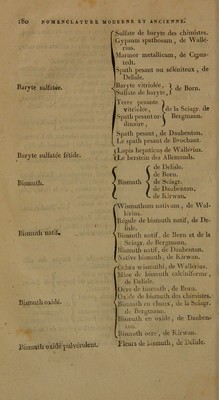 180 NOMENCLATURE MODERNE ET ANCIENNE.
Sulfate de baryte des chimistes.
Gypsum spathosum, de Wallé-
rius.
Marmor metallicum, de Crons-
tedt.
Spath pesant ou séléniteux, de
Delisle.
Baryte sulfatée.
Baryte vitriolée, } de Born.
Sulfate de baryte,
Terre pesante
vitriolée, de la Sciagr. de
Spath pesant or- Bergmann.
dinaire,
Spath pesant, de Daubenton.
Le spath pesant de Brochant.
Baryte sulfatée fétide.
Lapis hepaticus de Wallérius.
Le berstein des Allemands.
Bismuth.
Bismuth
de Delisle.
de Born.
de Sciagr.
de Daubenton.
de Kirwan.
Bismuth natif.
Wismuthum nativum, de Wal-
lérius.
Régule de bismuth natif, de De-
lisle.
Bismuth natif, de Born et de la
Sciagr. de Bergmann.
Bismuth natif, de Daubenton.
Native bismuth, de Kirwan.
Bismuth oxidé.
Ochra wismuthi, de Wallérius.
Mine de bismuth calciforme,
de Delisle.
Ocre de bismuth, de Born.
Oxide de bismuth des chimistes.
Bismuth en chaux, de la Sciagr.
de Bergmann.
Bismuth en oxide, de Dauben-
ton.
Bismuth ocre, de Kirwan.
Bismuth oxidé pulvérulent. Fleurs de bismuth, de Delisle.